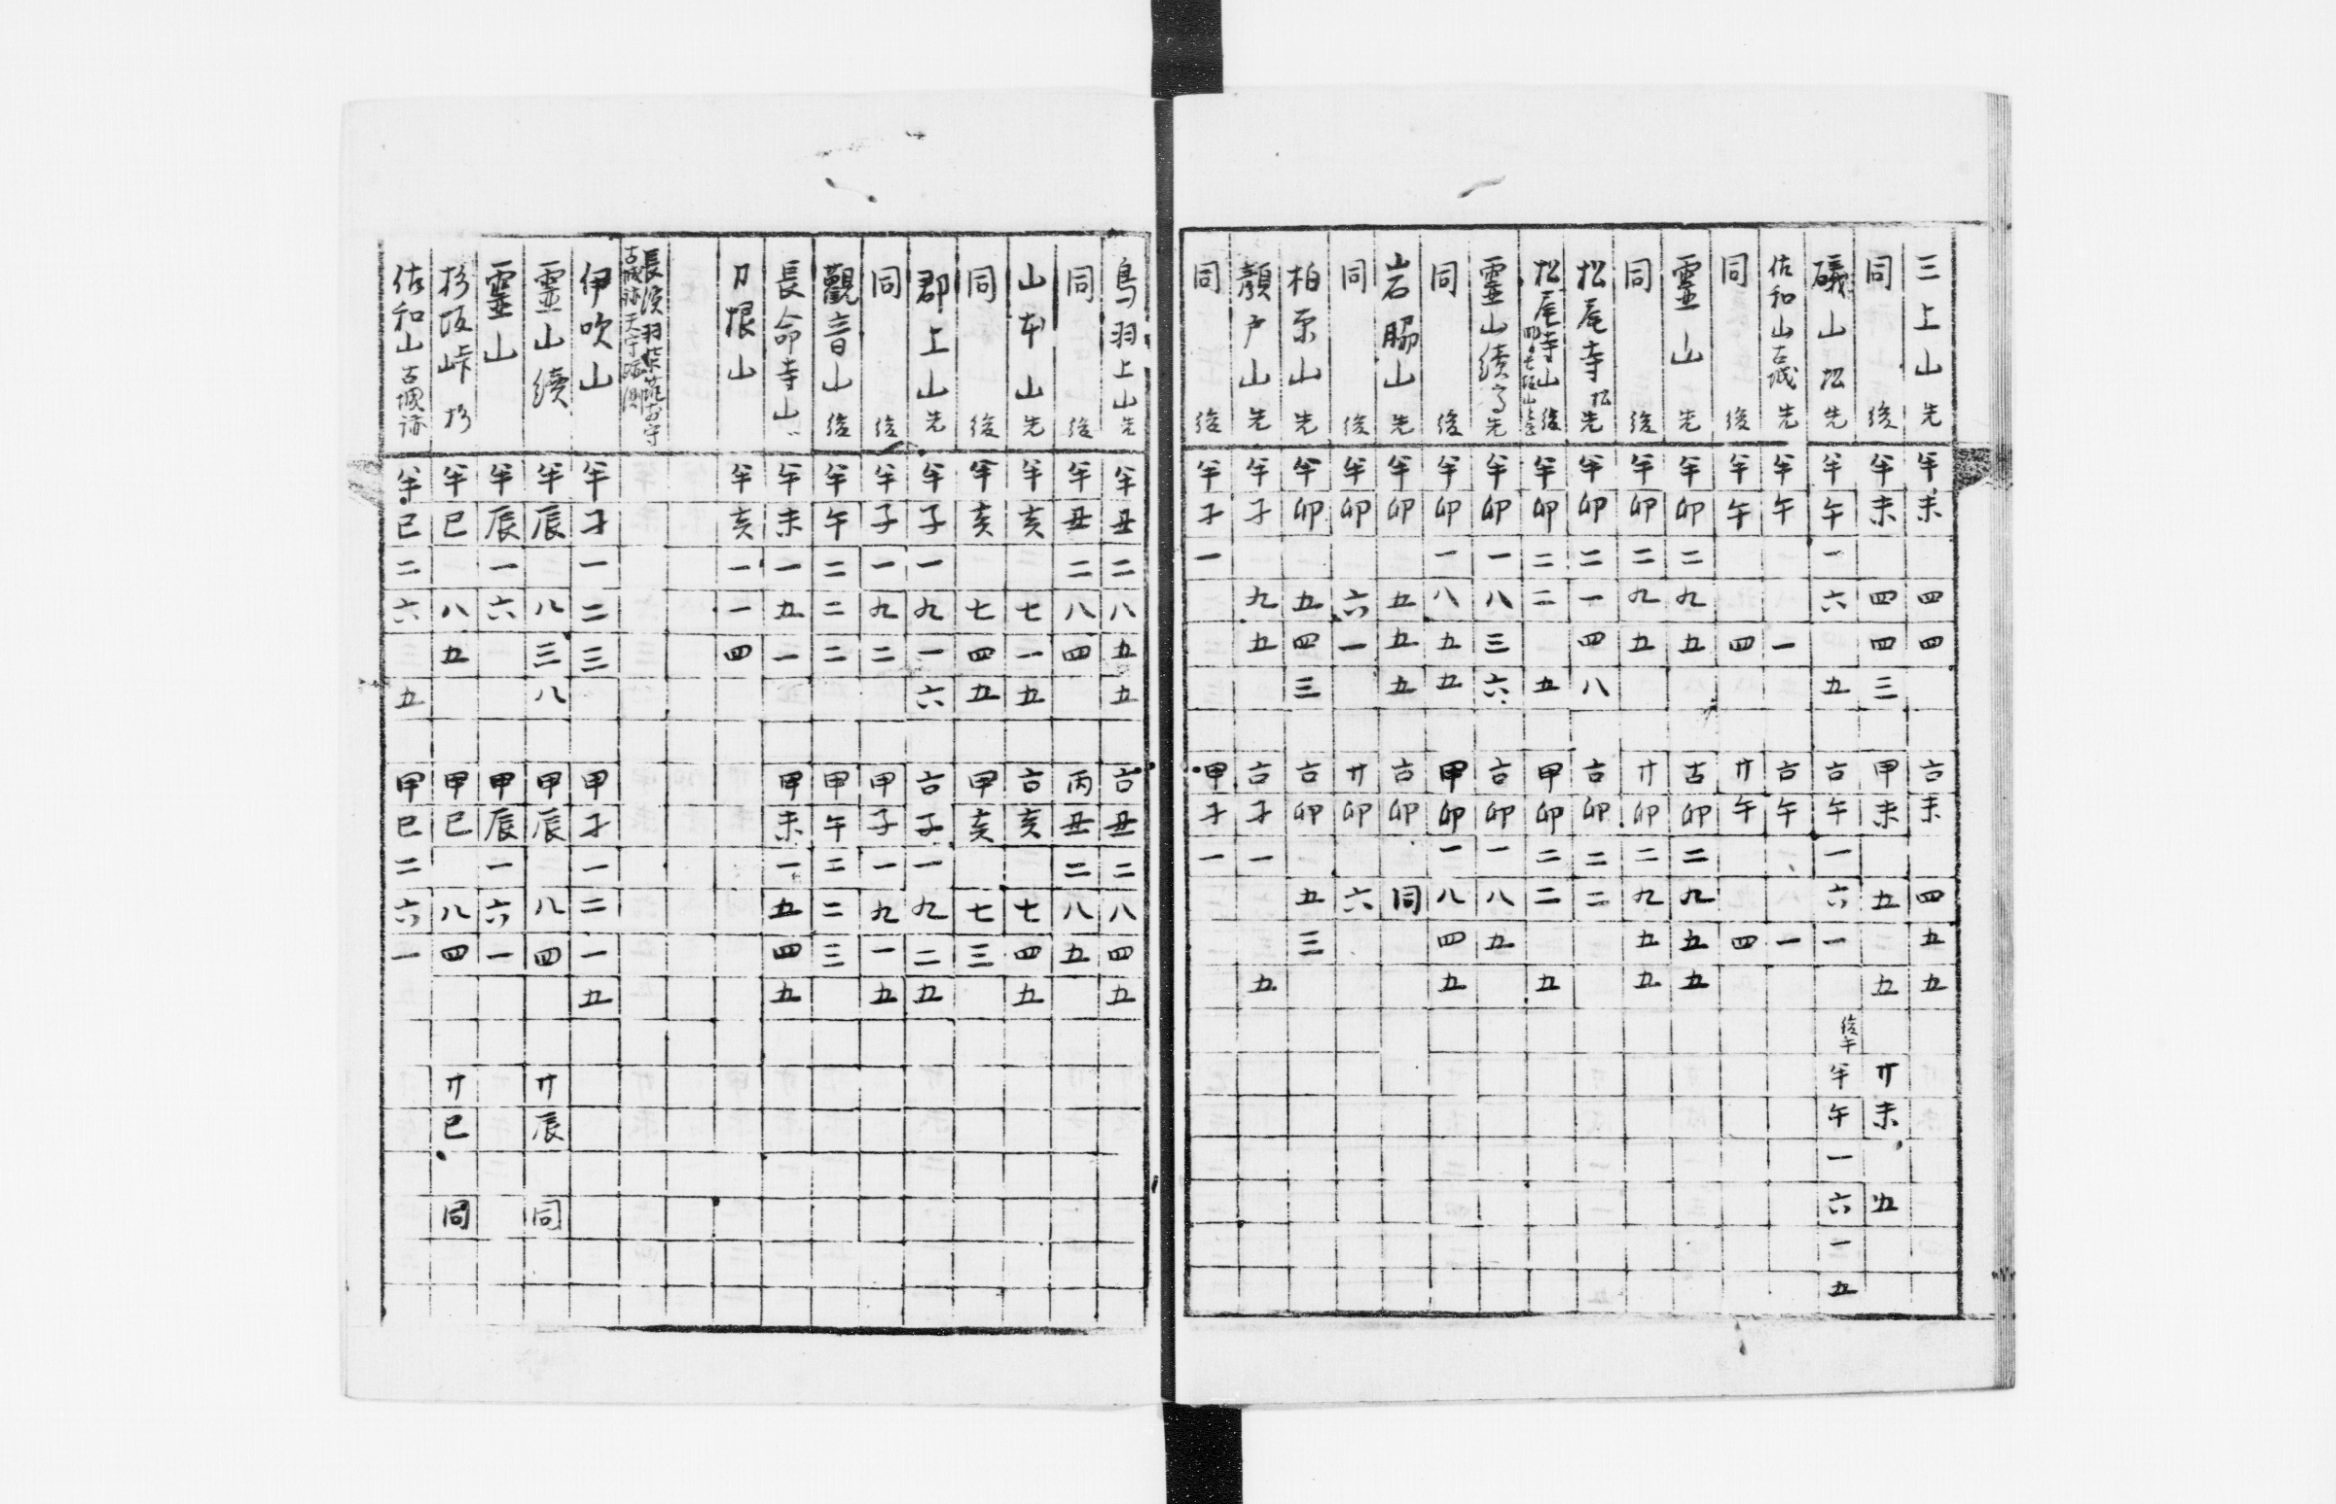 三上山先 半未四四 古未四五五
同後 半未四四三 甲未五五 廾未五
礒山松先 半午一六五 古午一六一 後午半午一六一五
佐和山古城先 半午一 古午一
同後 半午四 廾午四
靈山先 半卯二九五 古卯二九五五
同後 半卯二九五 廾卯二九五五
松尾寺松先 半卯二一四八 古卯二二
松尾寺山後 半卯二二五 甲卯二二五
靈山續先 半卯一八三六 古卯一八五
同後 半卯一八五五 甲卯一八四五
岩脇山先 半卯五五五 古卯同
同後 半卯六一 廾卯六
柏原山先 半卯五四三 古卯五三
顏戸山先 半子九五 古子一五
同後 半子一 甲子一
鳥羽上山先 半丑二八五五 古丑二八四五
同後 半丑二八四 丙丑二八五
山本山先 半亥七一五 古亥七四五
同後 半亥七四五 甲亥七三
郡上山先 半子一九一六 古子一九二五
同後 半子一九二 甲子一九一五
觀音山後 半午二二二 甲午二二三
長命寺山 半未一五一 甲未一五四五
刀根山 半亥一一四
長濱羽柴筑前守
古城跡天守
伊吹山 半子一二三 甲子一二一五
靈山續 半辰八三八 甲辰八四 廾辰同
靈山 半辰一六 甲辰一六一
杉坂峠杉 半巳八五 甲巳八四 廾巳同
佐和山古城跡 半巳二六五 甲巳二六一